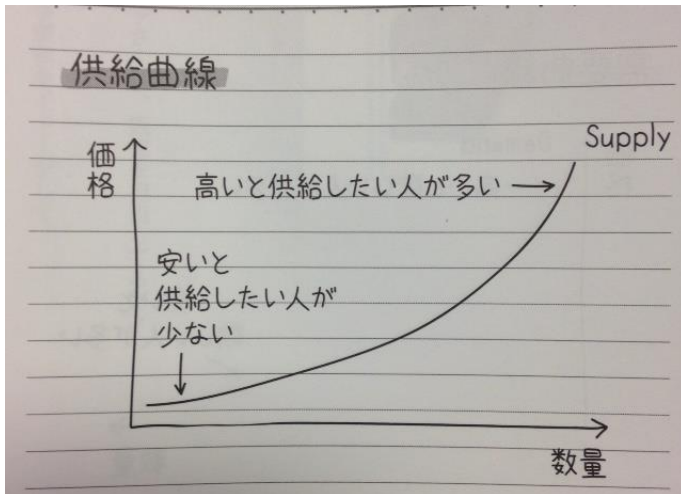 供給曲線
Supply
価格
高いと供給したい人が多い
安いと
供給したい人が
少ない
数量